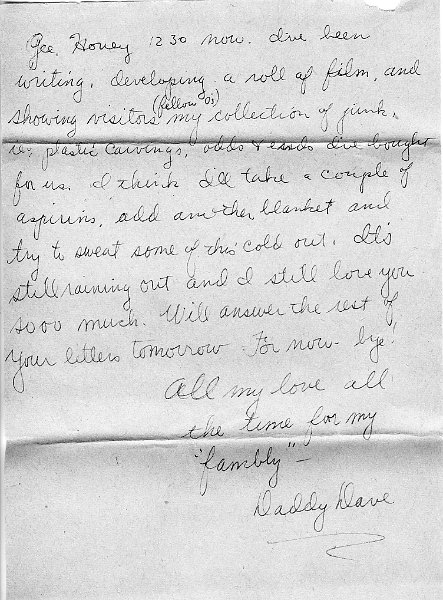 Gee. Honey 12 30 now. I've been
writing, developing a roll of film, and
showing visitors (fellow O's) my collection of junk,
ie; plastic carvings, odds & ends I've bought
for us. I think I'll take a couple of
aspirins, add another blanket and
try to sweat some of this cold out. It's
still raining out and I still love you
sooo much. Will answer the rest of
your letters tomorrow. For now - bye!
All my love all
the time for my
"fambly" -
Daddy Dave